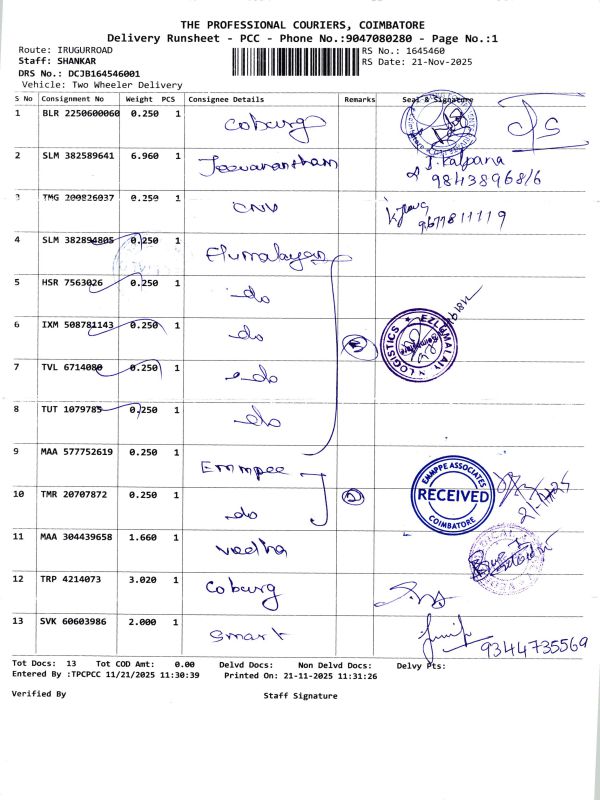 THE PROFESSIONAL COURIERS, COIMBATORE
Delivery Runsheet - PCC - Phone No.:9047080280 - Page No.:1
Route: IRUGURROAD RS No.: 1645460
Staff: SHANKAR RS Date: 21-Nov-2025
DRS No.: DCJB164546001
Vehicle: Two Wheeler Delivery
S No Consignment No Weight PCS Consignee Details Remarks Seal & Signature
1 BLR 2250600060 0.250 1 Coburg
2 SLM 382589641 6.960 1 Jeevanantham J. Kalpana
9843896816
3 TMG 200826037 0.250 1 CNV 9677811119
4 SLM 382894805 0.250 1 Elumalayan
5 HSR 7563026 0.250 1 do
6 IXM 508781143 0.250 1 do 3 EZLUMALAI LOGISTICS
7 TVL 6714080 0.250 1 do
8 TUT 1079785 0.250 1 do
9 MAA 577752619 0.250 1 Emmpee EMMPPE ASSOCIATES
RECEIVED
COIMBATORE
10 TMR 20707872 0.250 1 do 2 21/11/2025
11 MAA 304439658 1.660 1 vedha
12 TRP 4214073 3.020 1 Coburg
13 SVK 60603986 2.000 1 Smart 9344735569
Tot Docs: 13 Tot COD Amt: 0.00 Delvd Docs: Non Delvd Docs: Delvy Pts:
Entered By :TPCPCC 11/21/2025 11:30:39 Printed On: 21-11-2025 11:31:26
Verified By Staff Signature